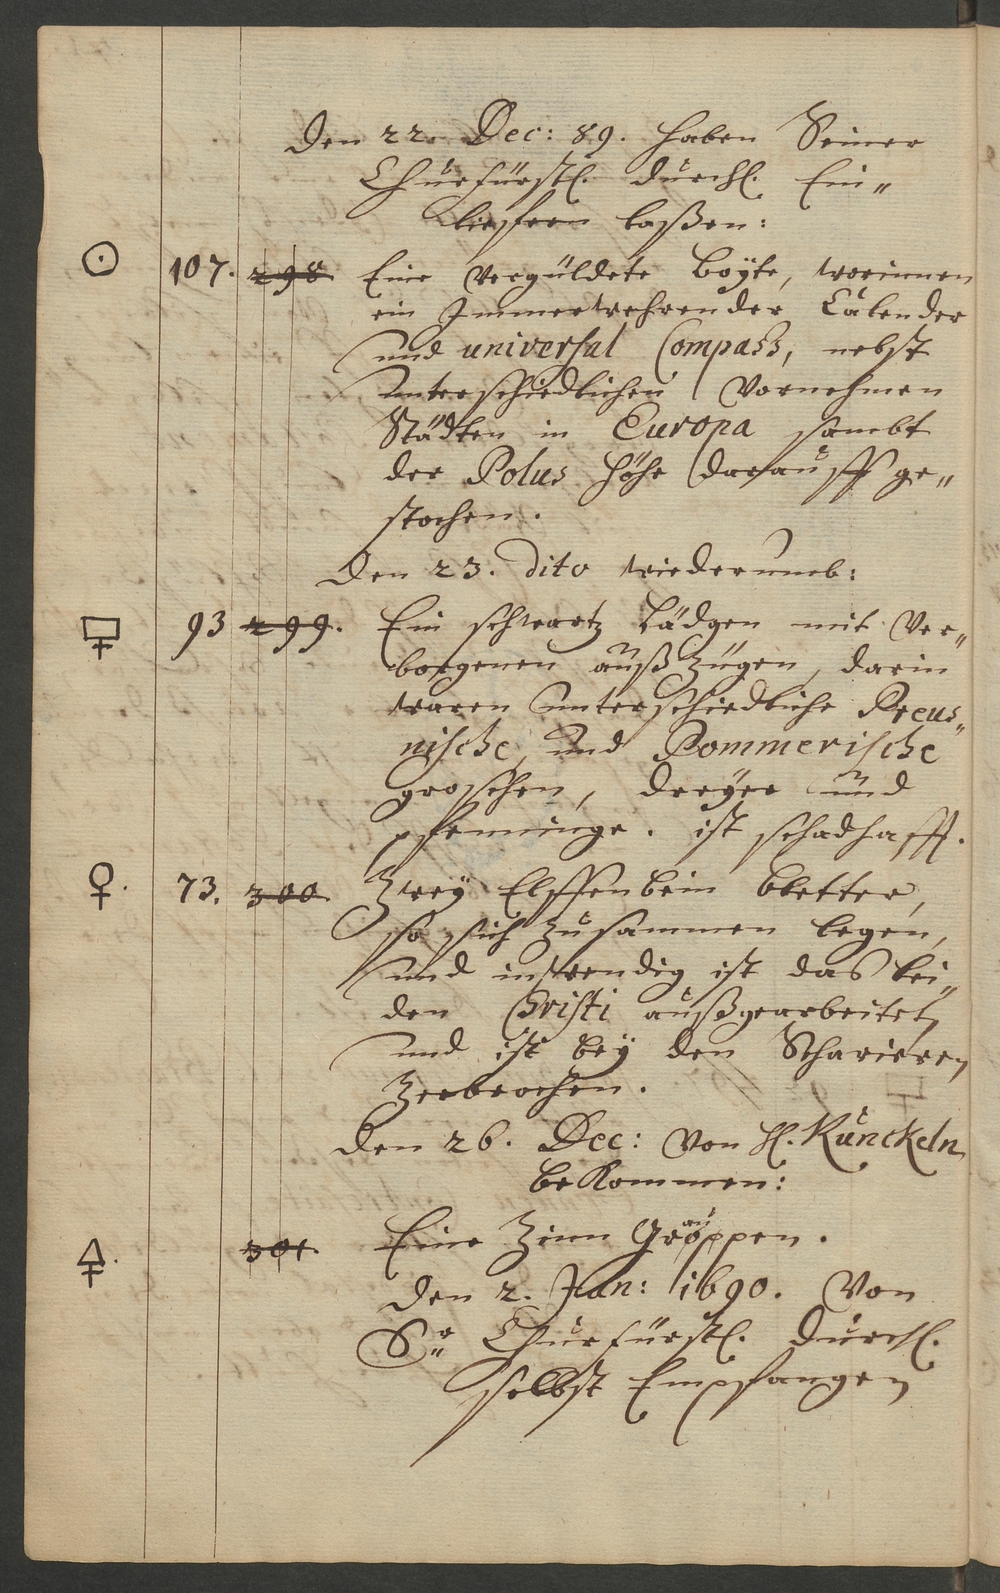 Den 22. Dec: 89. haben Seiner
Churfürstl. durchl. Ein„
liefern laßen:
☉ 107. 298. Eine vergüldete boÿte, worinnen
ein Immerwehrender Calender
und universal Compass, nebst
unterschiedlichen Vornehmen
Städten in Europa sambt
der Polus höhe darauff ge„
stochen.
Den 23. dito wiederumb:
93 299. Ein schwartz Lädgen mit Ver„
borgenen außzügen, darin
waren unterschiedliche Preus„
nische, und Pommerische
groschen, dreÿer und
pfenninge. ist schadhafft.
♀. 73. 300. Zweÿ Elffenbein bletter,
so sich zusammen legen,
und inwendig ist das lei„
den Christi außgearbeitet,
und ist beÿ den Scharieren
Zerbrochen.
Den 26. Dec: Von H. Kunckeln
bekommen:
301. Eine Zinn Gröppen.
au
Den 2. Jan: 1690. Von
Sr. Churfürstl. Durchl.
selbst Empfangen